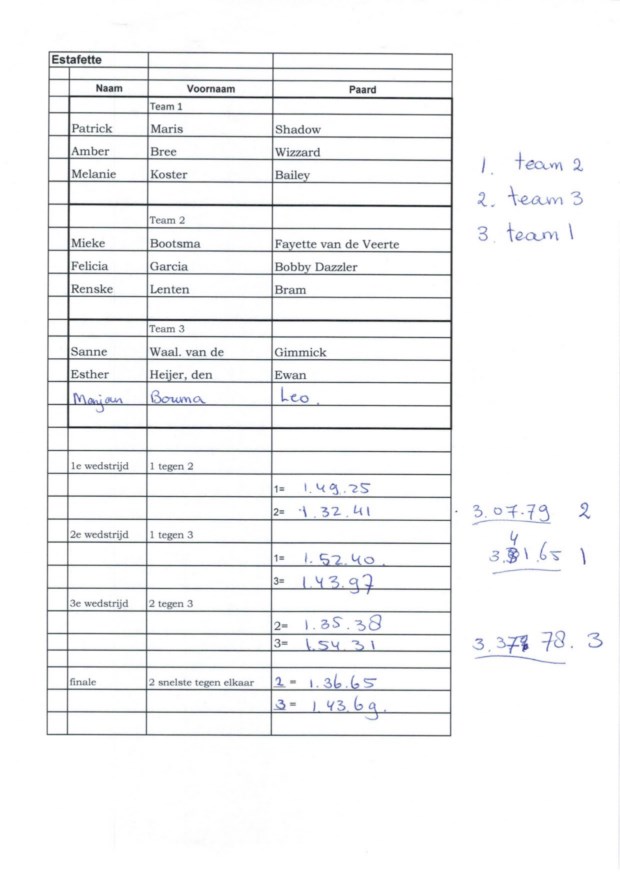 Estafette
Naam Voornaam Paard
Team 1
Patrick Maris Shadow
Amber Bree Wizzard
Melanie Koster Bailey
Team 2
Mieke Bootsma Fayette van de Veerte
Felicia Garcia Bobby Dazzler
Renske Lenten Bram
Team 3
Sanne Waal. van de Gimmick
Esther Heijer, den Ewan
Marjan Bouma Leo.
1. team 2
2. team 3
3. team 1
1e wedstrijd 1 tegen 2
1= 1.49.25
2= 1.32.41
3.07.79 2
2e wedstrijd 1 tegen 3
1= 1.52.40.
3= 1.43.97
3.41.65 1
3e wedstrijd 2 tegen 3
2= 1.35.38
3= 1.54.31
78. 3
finale 2 snelste tegen elkaar
2 = 1.36.65
3 = 1.43.69.